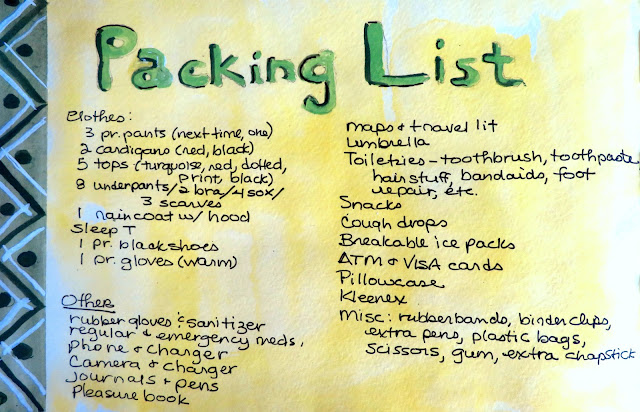 Packing List
Clothes:
3 pr. pants (next time, one)
2 cardigans (red, black)
5 tops (turquoise, red, dotted,
print, black)
8 underpants/2 bra/4 sox/
3 scarves
1 raincoat w/ hood
Sleep T
1 pr. black shoes
1 pr. gloves (warm)
Other
rubber gloves & sanitizer
regular & emergency meds,
phone & charger
Camera & charger
Journals & pens
Pleasure book
maps & travel lit
umbrella
Toiletries - toothbrush, toothpaste,
hair stuff, bandaids, foot
repair, etc.
Snacks
Cough drops
Breakable ice packs
ATM & VISA cards
Pillowcase
Kleenex
Misc: rubber bands, binder clips,
extra pens, plastic bags,
scissors, gum, extra chapstick